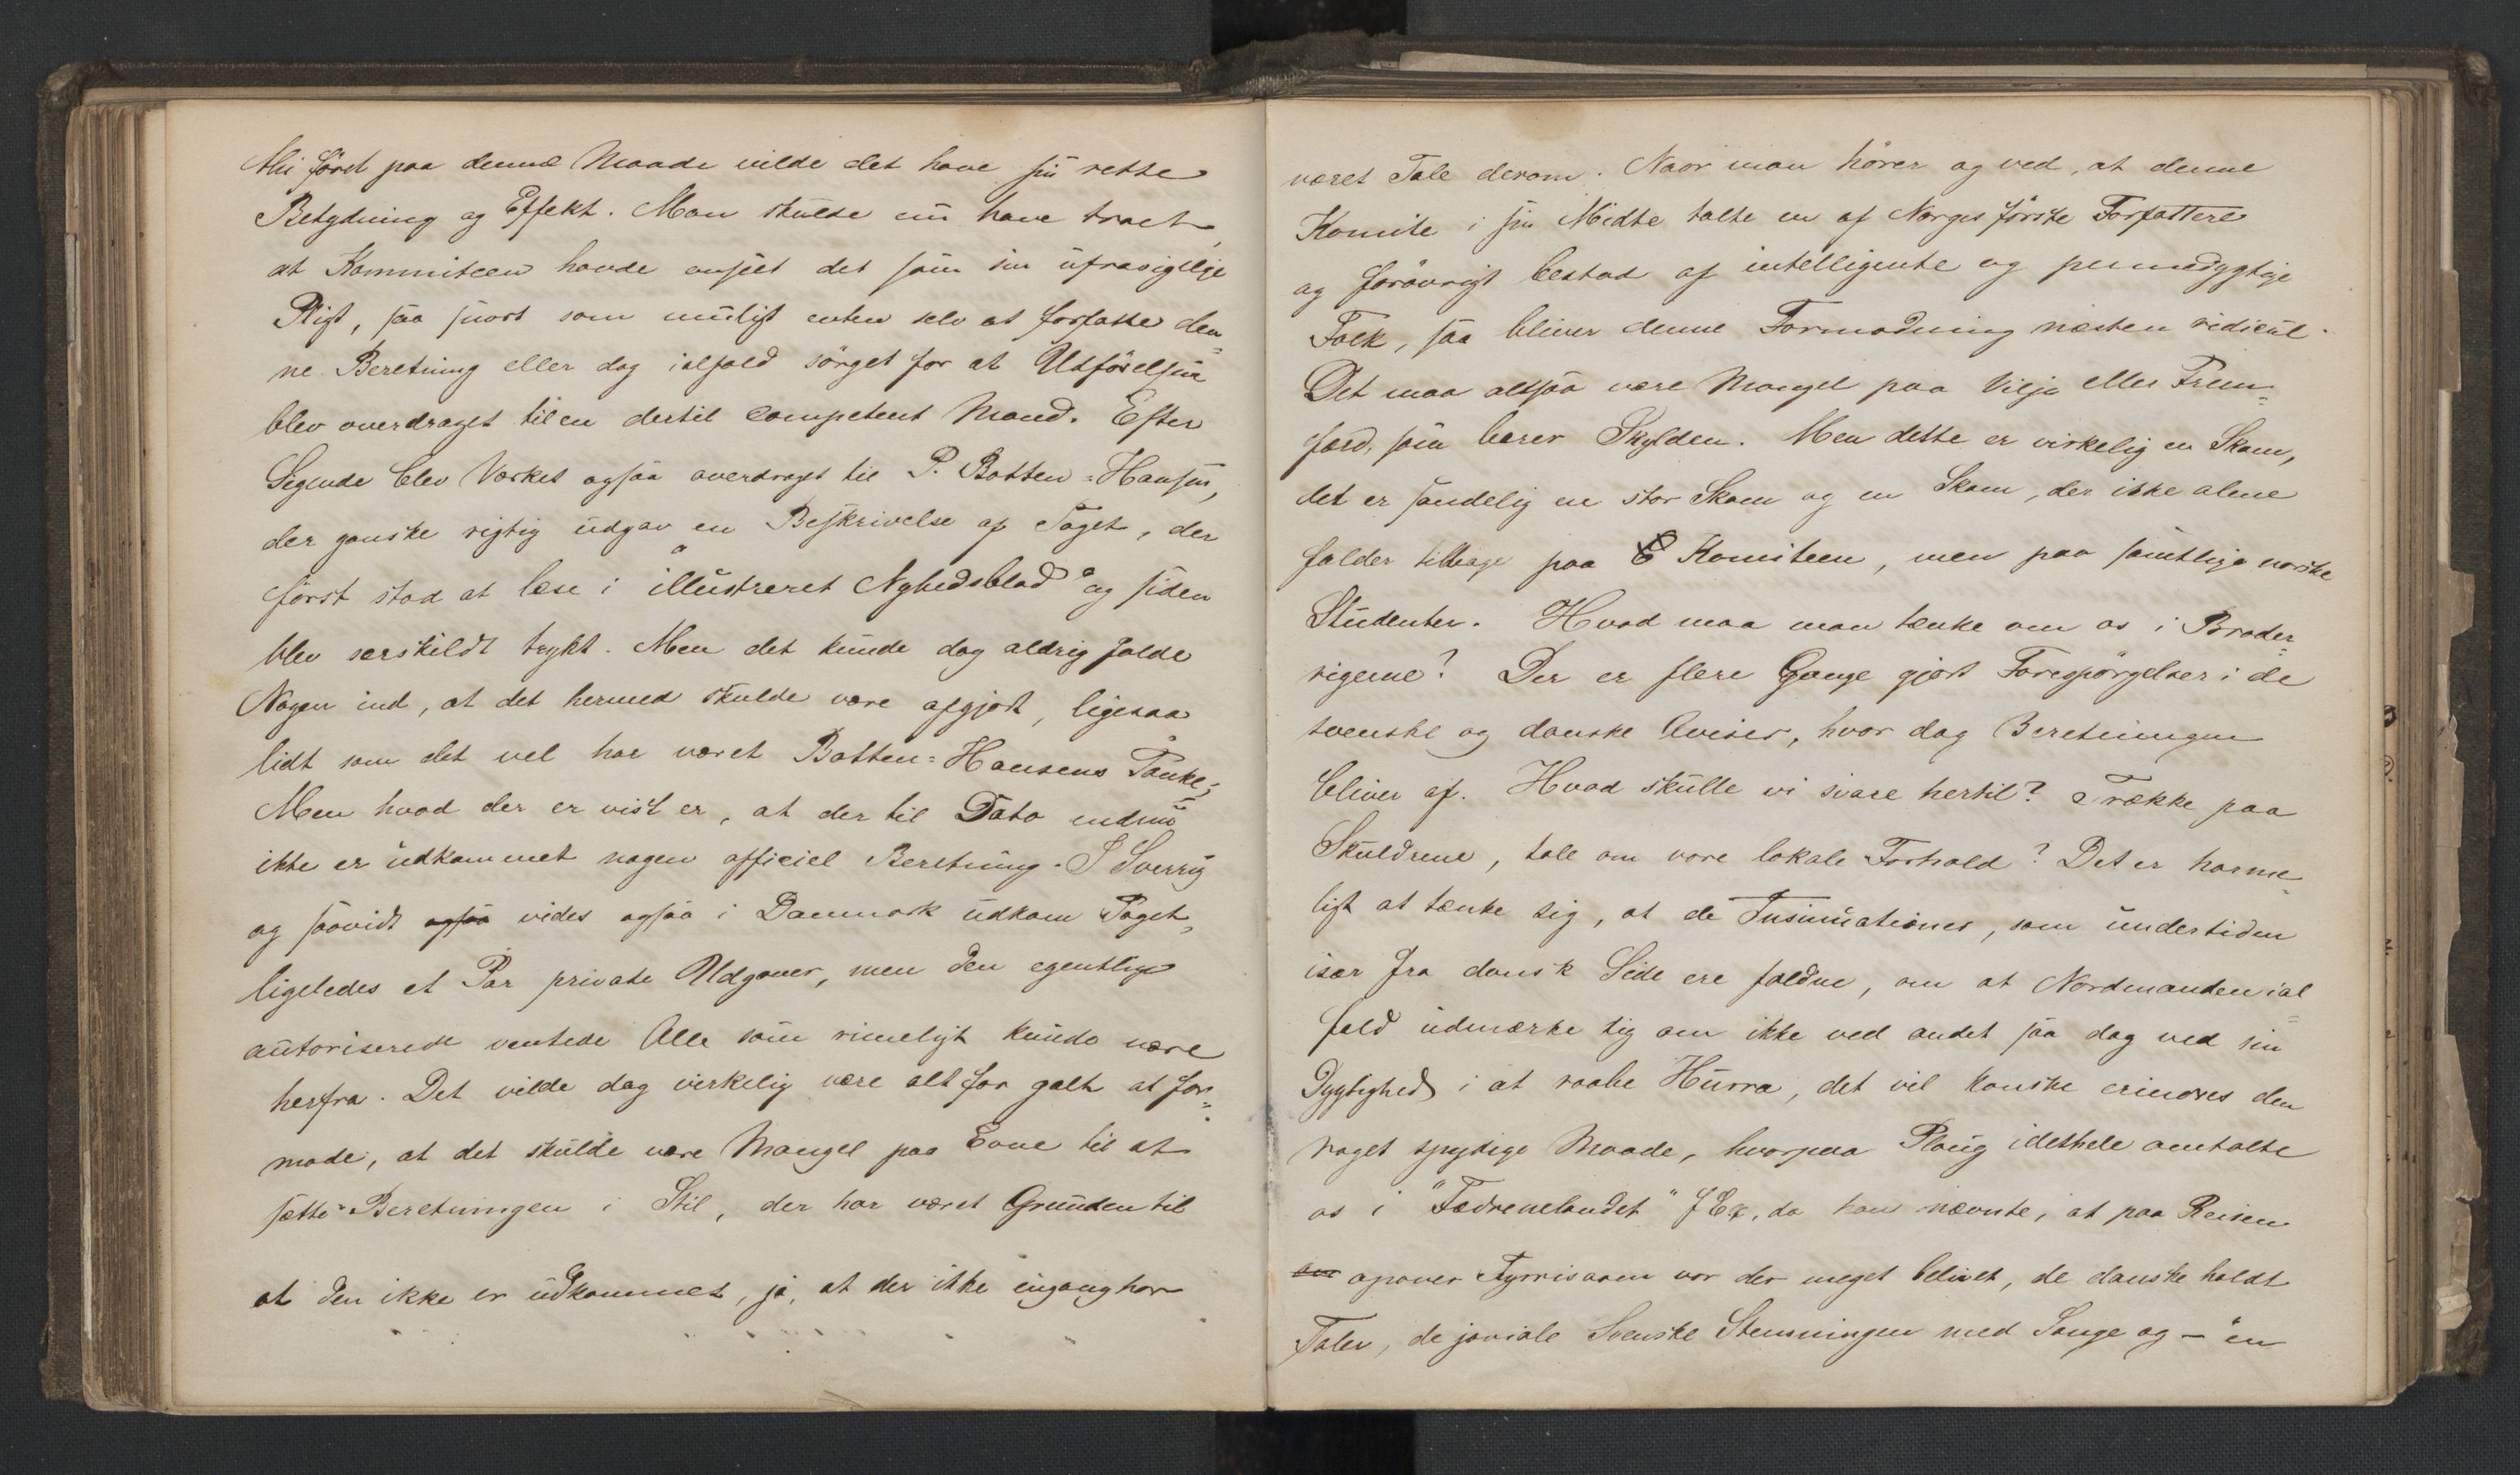 thi først paa denne Maade vilde det have sin rette
Betydning og Effekt. Man skulde nu have troet,
at Kommiteen havde anseet det som sin ufravigelige
Pligt, saa snart som muligt enten selv at forfatte den=
ne Beretning eller dog ialfald sørget for at Udførelsen
blev overdraget til en dertil competent Mand. Efter
Sigende blev Værket ogsaa overdraget til P. Botten=Hansen,
der ganske rigtig udgav en Beskrivelse af Toget, der
først stod at læse i "illustreret Nyhedsblad" og siden
blev særskildt trykt. Men det kunde dog aldrig falde
Nogen ind, at det hermed skulde være afgjort, ligesaa
lidt som det vel har været Botten=Hansens Tanke;
Men hvad der er vist er, at der til Dato endnu
ikke er udkommet nogen officiel Beretning. I Sverrig
og saavidt ogsaa vides ogsaa i Danmark udkom Toget,
ligeledes et Par private Udgaver, men den egentlige
autoriserede ventede Alle som rimeligt kunde være
herfra. Det vilde dog virkelig være alt for galt at for=
mode, at det skulde være Mangel paa Evne til at
sætte Beretningen i Stil, der har været Grunden til
at den ikke er udkommet, ja, at der ikke engang har
været Tale derom. Naar man hører og ved, at denne
Komite i sin Midte talte en af Norges første Forfattere
og forøvrigt bestod af intelligente og pennedygtige
Folk, saa bliver denne Formodning næsten ridicul.
Det maa altsaa være Mangel paa Vilje eller Frem=
færd, som bærer Skylden. Men dette er virkelig en Skam,
det er sandelig en stor Skam og en Skam, der ikke alene
falder tilbage paa C Komiteen, men paa samtlige norske
Studenter. Hvad maa man tænke om os i Broder=
rigerne? Der er flere Gange gjort Forespørgelser i de
svenske og danske Aviser, hvor dog Beretningen
bliver af. Hvad skulle vi svare hertil? Trække paa
Skuldrene, tale om vore lokale Forhold? Det er harme=
ligt at tænke sig, at de Insinuationer, som undertiden
især fra dansk Side ere faldne, om at Nordmanden ial=
fald udmærke sig om ikke ved andet saa dog ved sin
Dygtighed i at raabe Hurra, det vil kanske erindres den
noget spydige Maade, hvorpaa Ploug idethele omtalte
os i "Fædrenelandet" f Ex, da han nævnte, at paa Reisen
om opover Fyrrisaaen var der meget belivet, de danske holdt
Taler, de joviale Svenske Stemningen med Sange og – "en